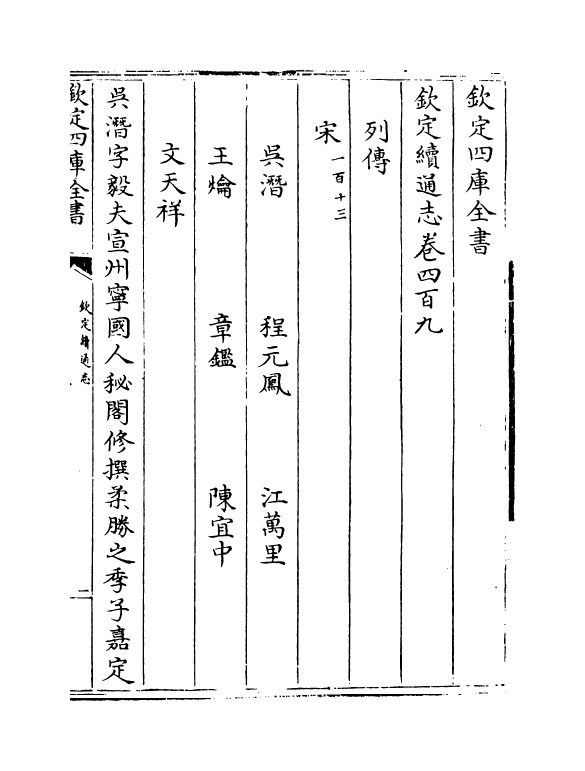 欽定四庫全書
欽定續通志卷四百九
列傳
宋一百十三
吳潛　程元鳳　江萬里
王爚　章鑑　陳宜中
文天祥
吳潛字毅夫宣州寧國人秘閣修撰柔勝之季子嘉定
欽定四庫全書
欽定續通志